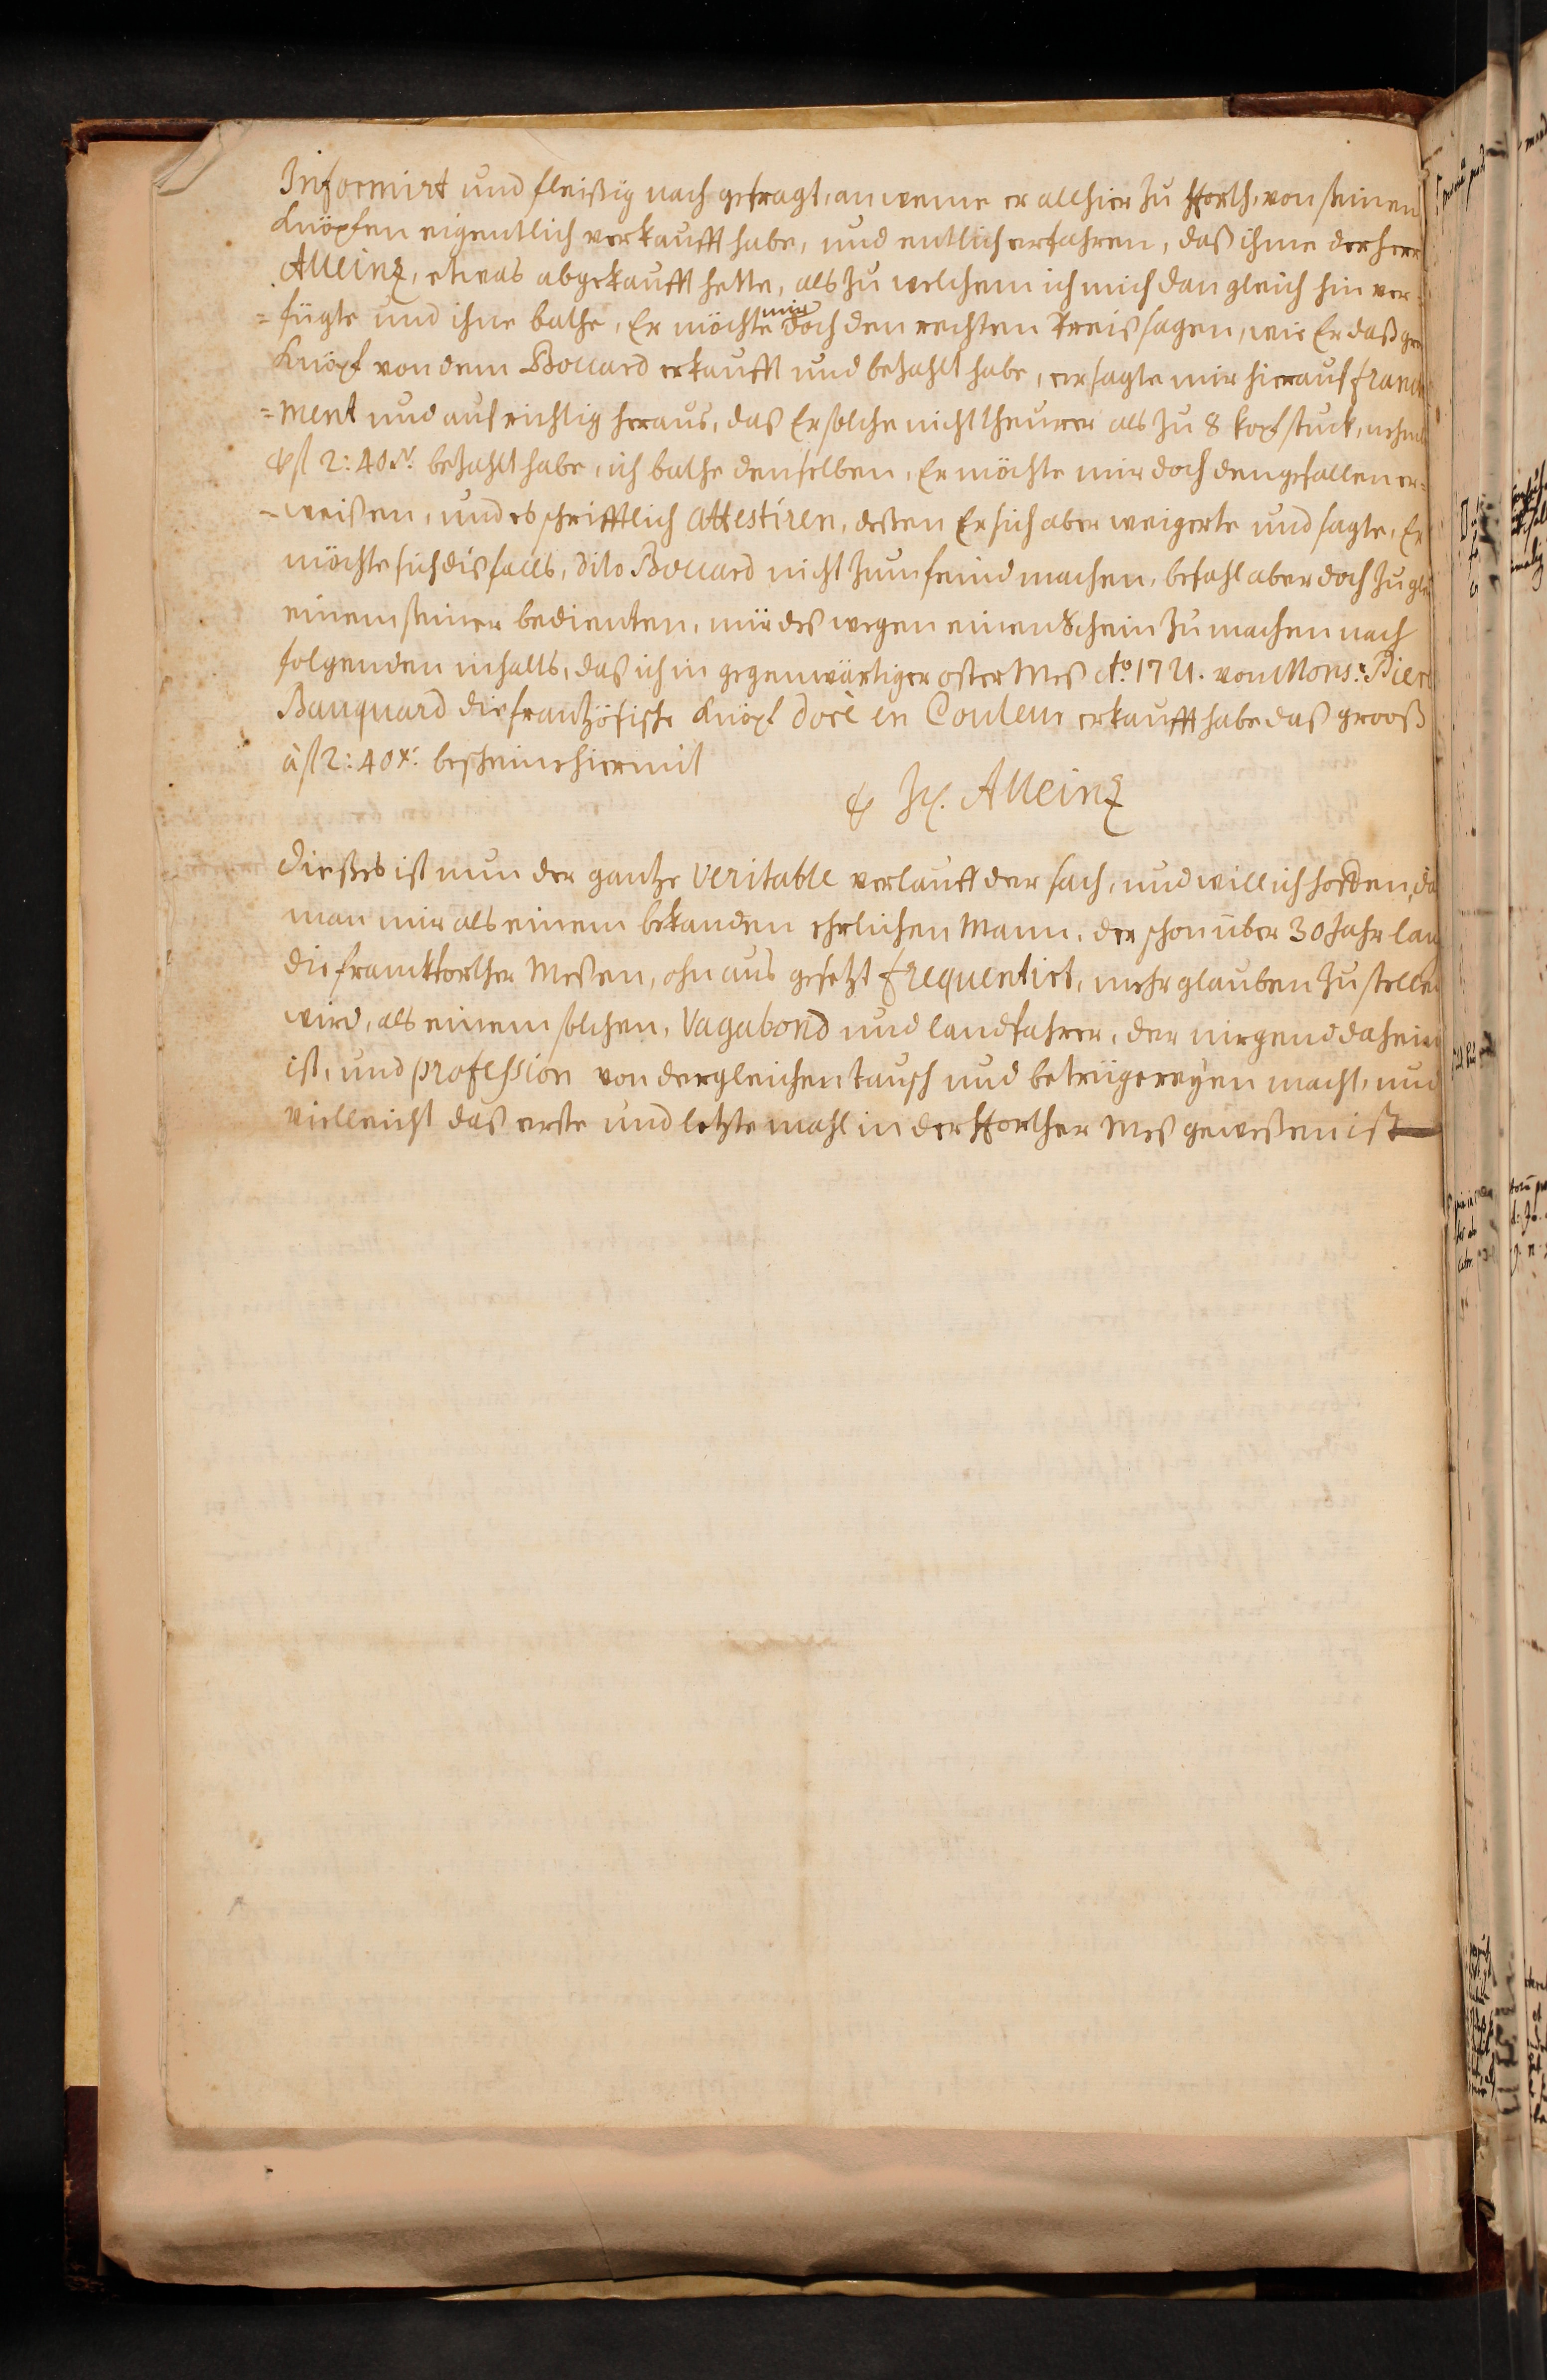 Informirt und fleißig nach gefragt, an weme er allhier zu fforth, von seinen
Knöpfen eigentlich verkaufft habe, und entlich erfahren, daß ihme der herr
Alleinz, etwas abgekaufft hette, als zu welchem ich mich dan gleich hin ver-
=fügte und ihne bathe, Er möchte mir doch den rechten Preis sagen, wie Er daß
Knöpf von dem Bouard erkaufft und bezahlt habe, er sagte mir hierauf
=ment und aufrichtig heraus, daß Er solche nicht theurer als zu 8 kopfstuck,
fl 2:40 xr. bezahlt habe, ich bathe denselben, Er möchte mir doch den gefallen er=
=weißen, und es schrifftlich attestiren, deßen Er sich aber weigerte und sagte, Er
möchte sich disfalls, dito Bouard nicht zum feind machen, befahl aber doch
einem seiner bedienten, mir des wegen einen Schein zu machen nach
folgenden inhalts, daß ich in gegenwärtiger oster Mes Ao. 1721. von Mons:r
Bauquard die frantzösische Knöpf doré en Couleur erkaufft habe daß grooß
à fl 2:40 xr: bescheine hiermit
Alleinz
Dießes ist nun der gantze veritable verlauff der sach, und will ich hoffen,
man mir als einem bekanden ehrlichen Mann, der schon über 30 Jahr
die franckforther Meßen, ohn aus gesetzt frequentirt, mehr glauben zu stellen
wird, als einem solchen, Vagabond und landfahrer, der nirgend daheim
ist, und profession von dergleichen tausch und betrügereyen macht, und
vielleicht daß erste und letzte mahl in der fforther Mes geweßen ist